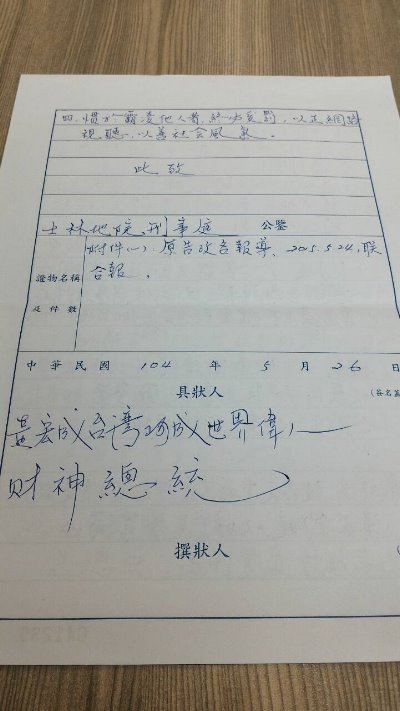 四、慣於霸凌他人者,終必受罰,以正網路
視聽、以善社會風氣。
此致
士林地院刑事庭 公鑒
證物名稱及件數
附件(一):原告改告報導、2015.5.24,联
合報。
中華民國 104 年 5 月 26 日
具狀人
成台灣 成世界偉人
財神總統
撰狀人